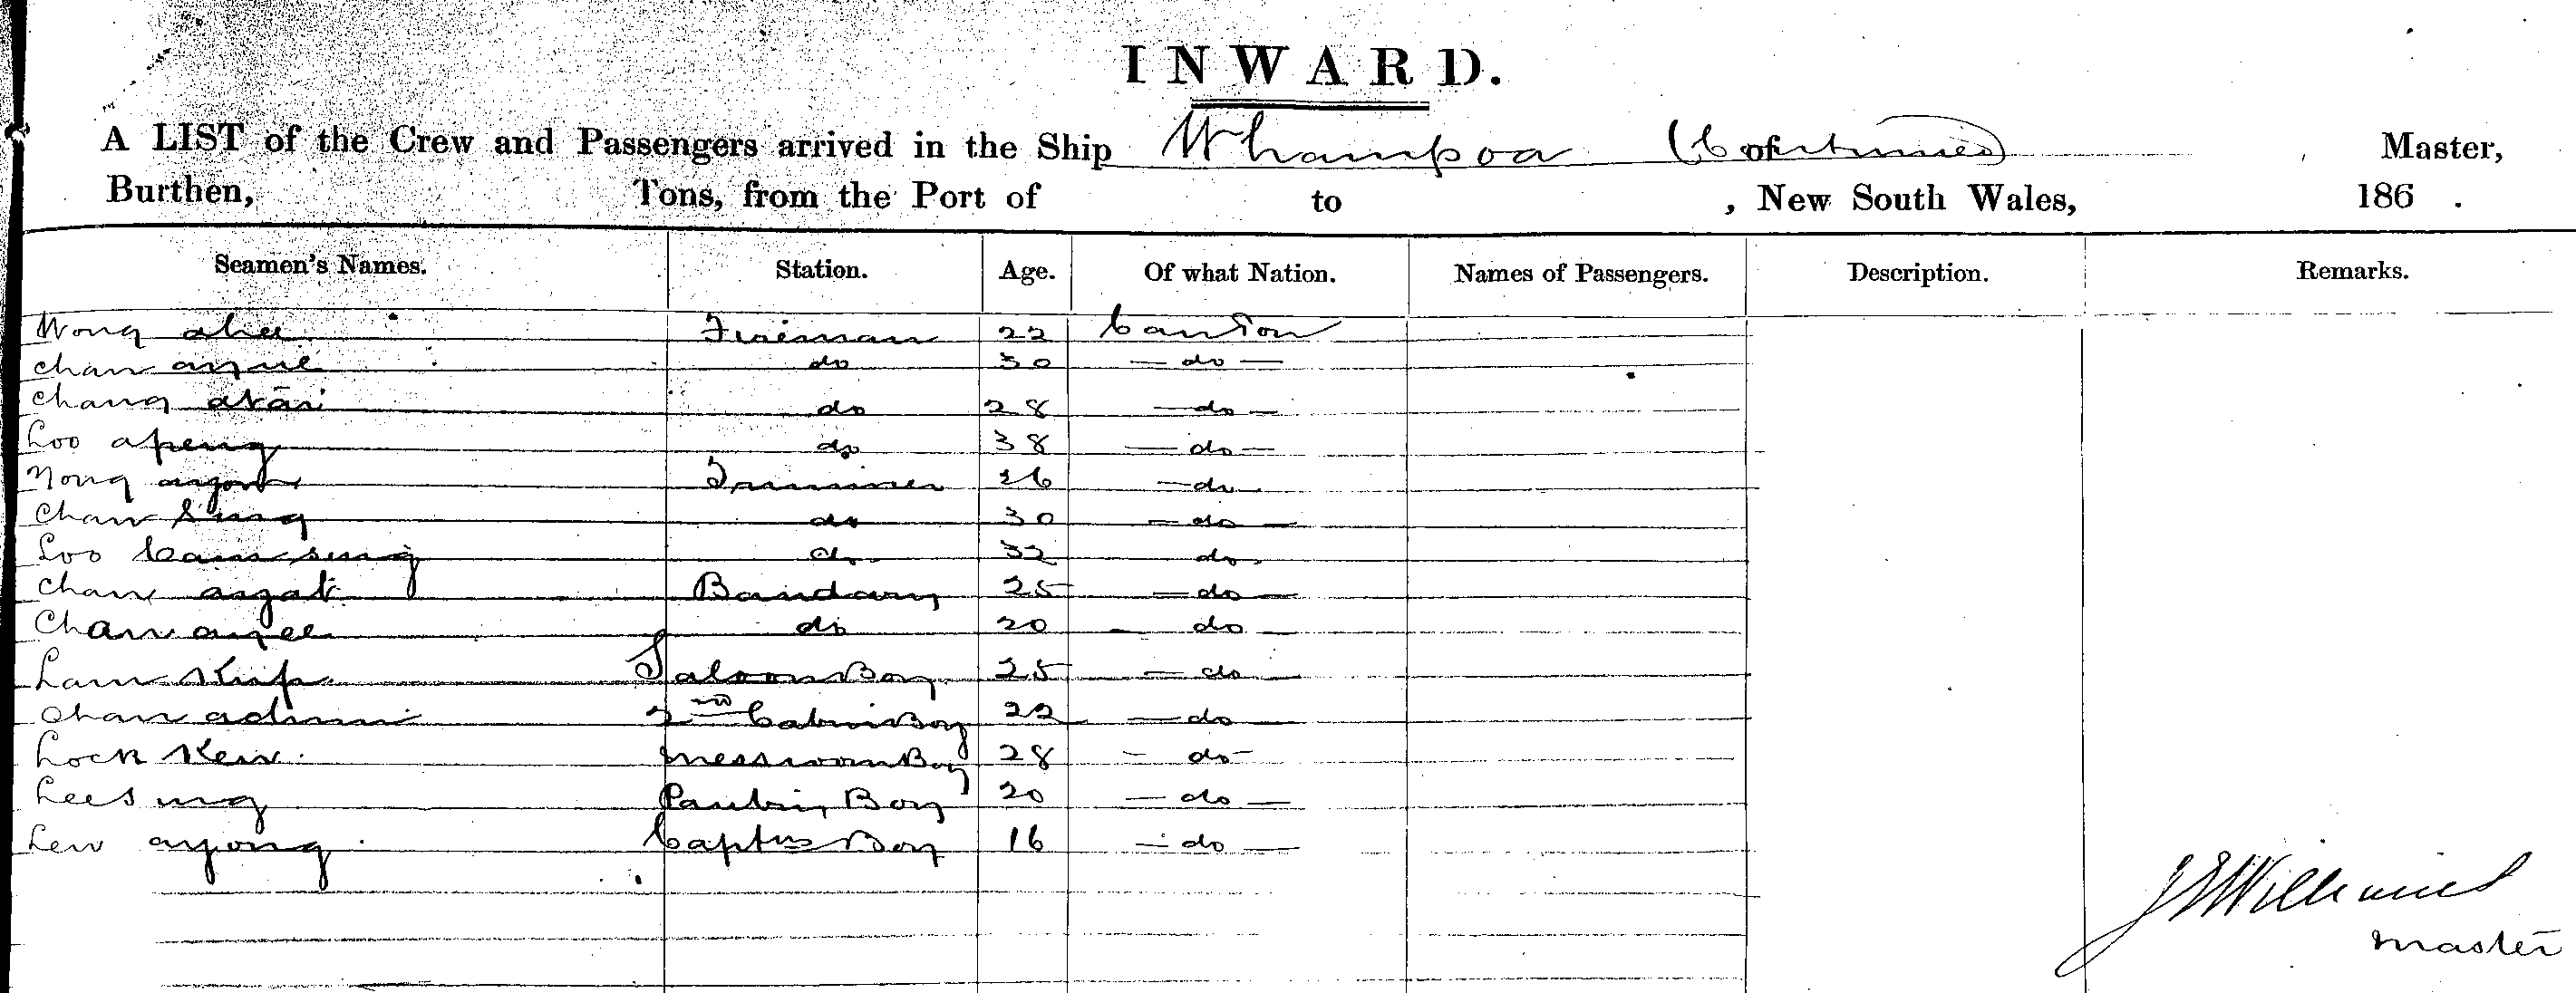 INWARD.
A LIST of the Crew and Passengers arrived in the Ship Whampoa (Continued) Master,
Burthen, Tons, from the Port of to , New South Wales, 186 .
Seamen's Names. Station. Age. Of what Nation. Names of Passengers. Description. Remarks.
Wong ahee Fireman 22 Canton
Chan do 30 - do -
Chang do 28 - do -
Loo apeng do 38 - do -
Trimmer 26 - do -
Chan Sing do 30 - do -
Loo Cam sing do 32 do
Chan Bandary 25 - do -
Chan do 20 - do -
Lam Kip Saloon Boy 25 - do -
Chan 2nd Cabin Boy 22 - do -
Lock Kew Messroom Boy 28 - do -
Lee Sing Pantry Boy 20 - do -
Lew ayong Capt's Boy 16 - do -
Williams
Master